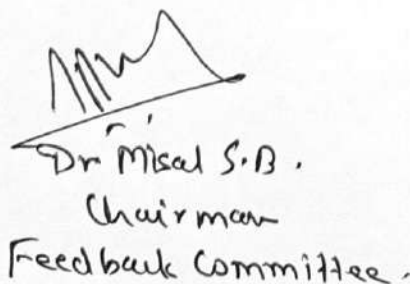 Dr Misal S.B.
Chairman
Feedback Committee.